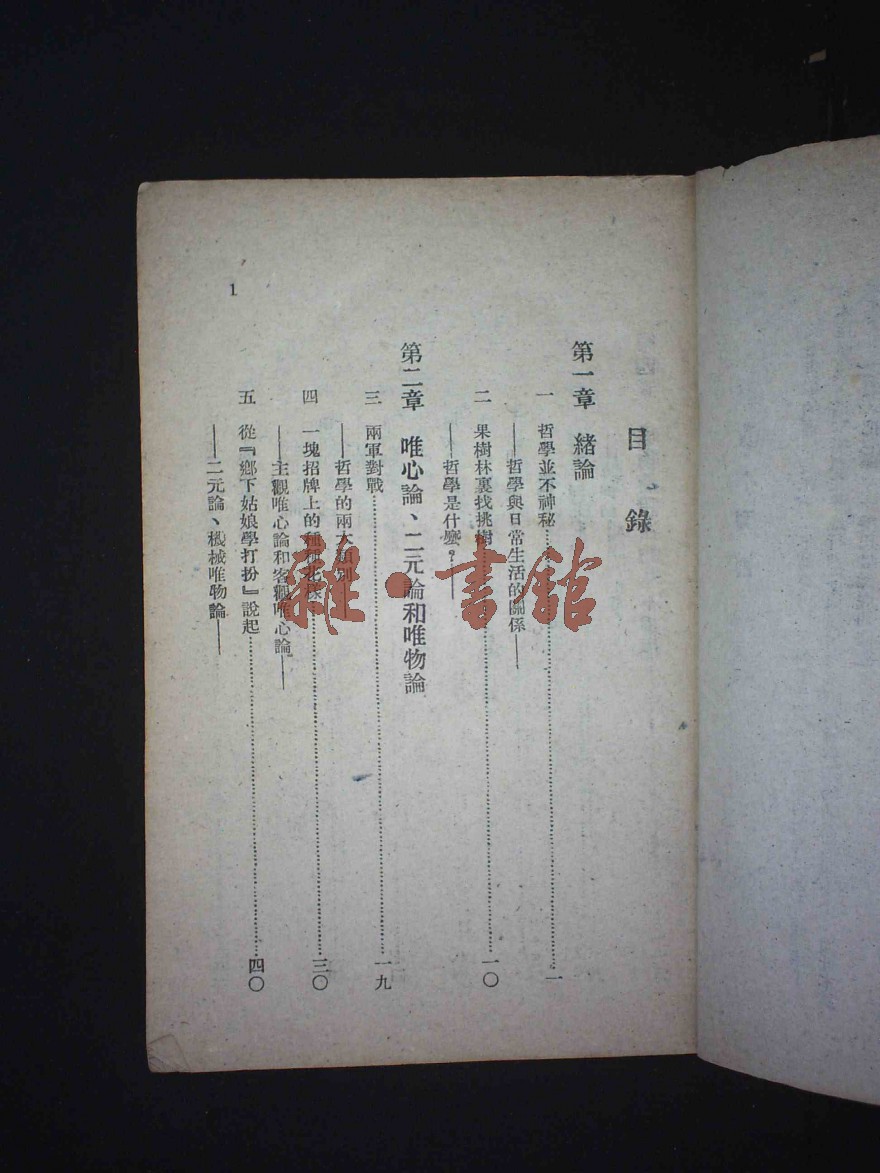 目錄
第一章 緒論
一 哲學並不神秘……一
——哲學與日常生活的關係——
二 果樹林裏找桃樹……一〇
——哲學是什麼？——
第二章 唯心論、二元論和唯物論
三 兩軍對戰……一九
——哲學的兩大類別——
四 一塊招牌上的種種花樣……三〇
——主觀唯心論和客觀唯心論——
五 從『鄉下姑娘學打扮』說起……四〇
——二元論、機械唯物論——
1
雜·書館